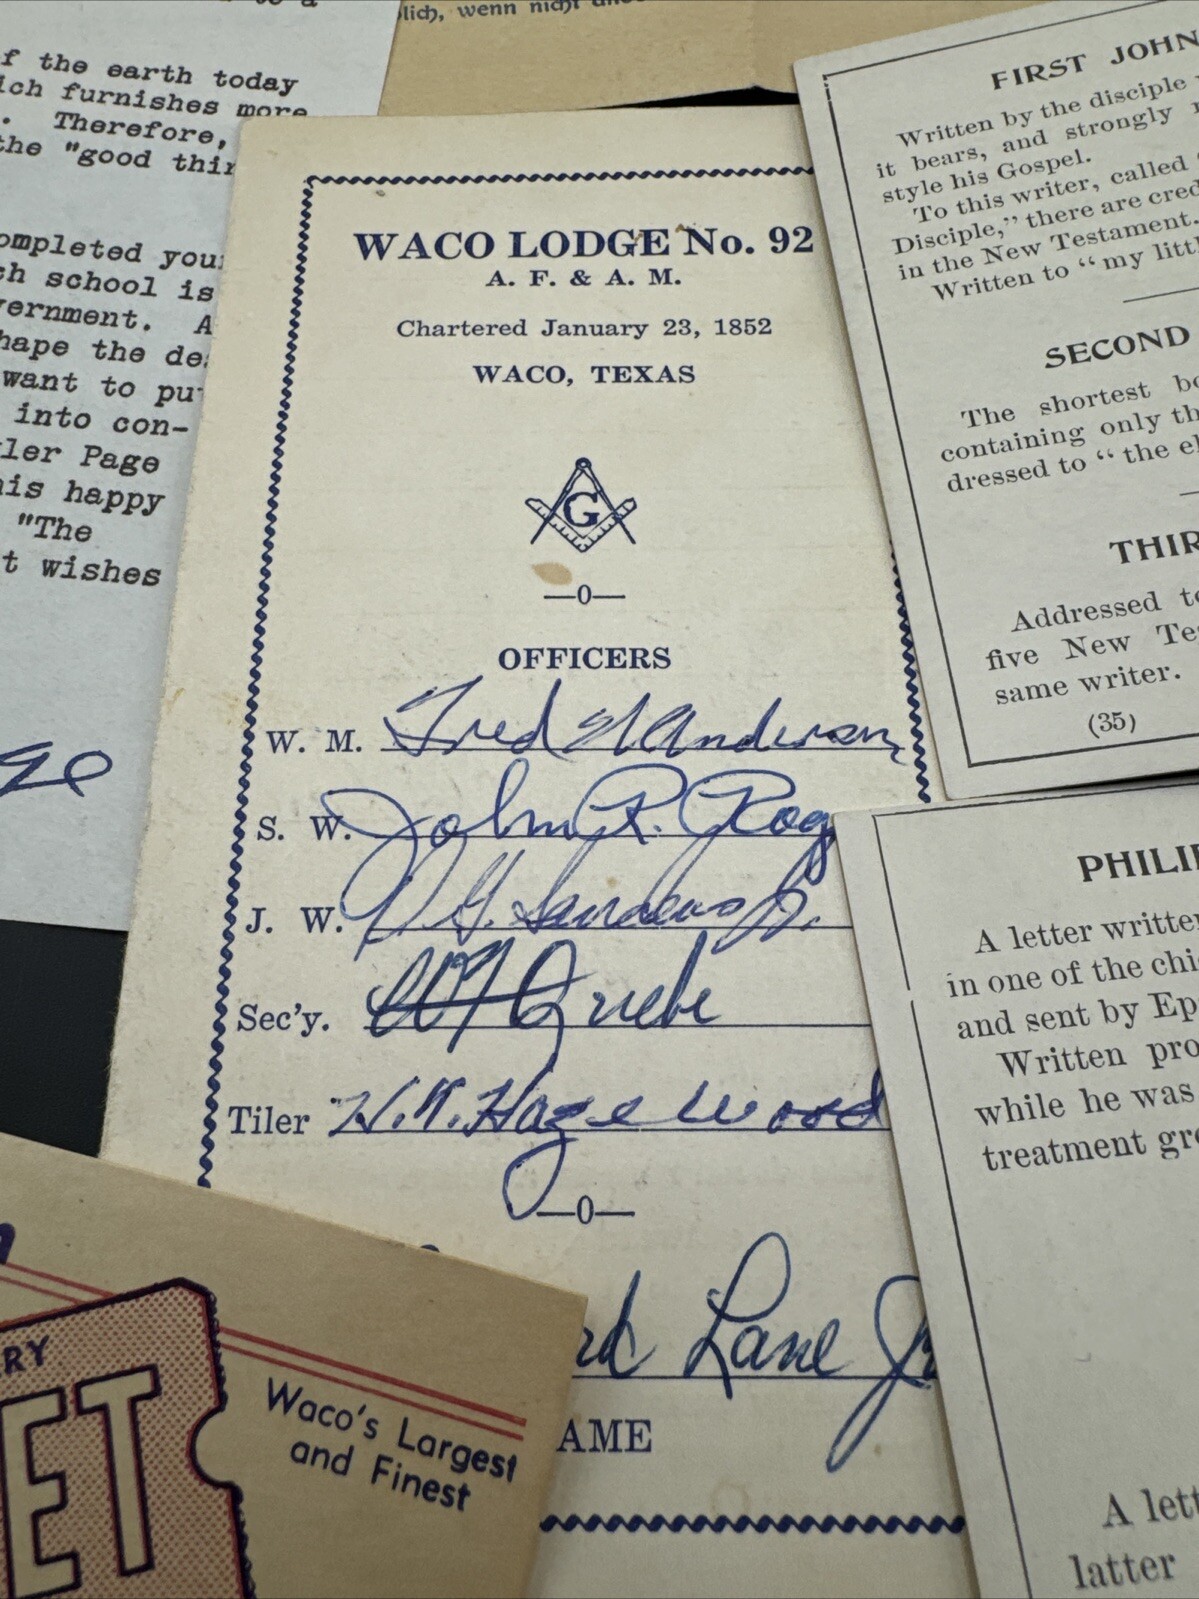 f the earth today
ich furnishes more
. Therefore,
the "good thin
ompleted your
ch school is
vernment. A
hape the des
want to put
into con-
ler Page
his happy
"The
t wishes
lich, wenn nicht
WACO LODGE No. 92
A. F. & A. M.
Chartered January 23, 1852
WACO, TEXAS
G
—0—
OFFICERS
W. M. Fred Anderson
S. W. John R. Rog
J. W. Sanders Jr.
Sec'y.
Tiler H. Hazelwood
—0—
rd Lane Jr
AME
FIRST JOHN
Written by the disciple
it bears, and strongly
style his Gospel.
To this writer, called
Disciple," there are cred
in the New Testament.
Written to "my littl
SECOND
The shortest bo
containing only th
dressed to "the el
THIR
Addressed to
five New Tes
same writer.
(35)
PHILI
A letter writte
in one of the chi
and sent by Ep
Written pro
while he was
treatment gre
A lett
latter
RY
ET
Waco's Largest
and Finest